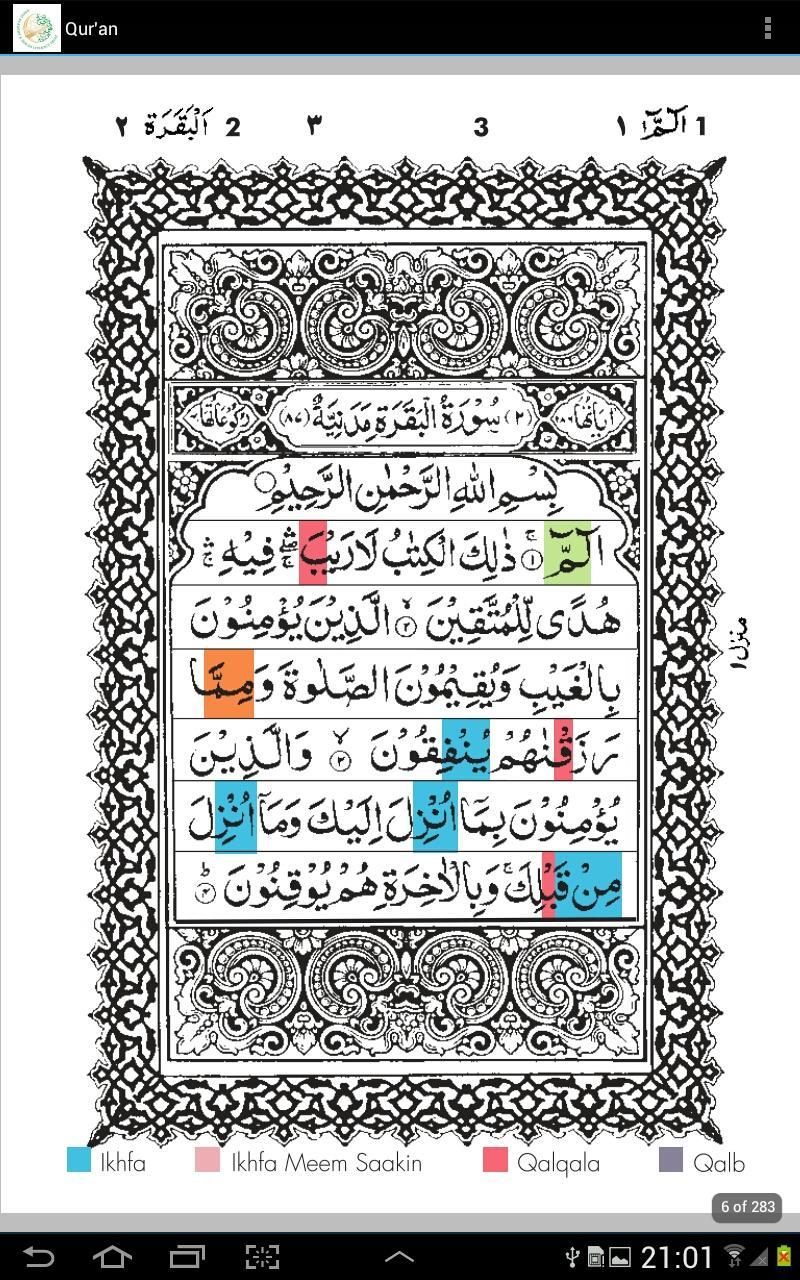 Qur'an
1 الٓمّٓ ١ 3 ٣ 2 اَلْبَقَرَة ٢
(٢) سُوْرَةُ الْبَقَرَةِ مَدَنِيَّةٌ (٨٧)
بِسْمِ اللّٰهِ الرَّحْمٰنِ الرَّحِيْمِ
الٓمّٓ ۚ ١ ذٰلِكَ الْكِتٰبُ لَا رَيْبَ ۛۖۚ فِيْهِ ۛۚ
هُدًى لِّلْمُتَّقِيْنَ ۙ ٢ الَّذِيْنَ يُؤْمِنُوْنَ
بِالْغَيْبِ وَيُقِيْمُوْنَ الصَّلٰوةَ وَمِمَّا
رَزَقْنٰهُمْ يُنْفِقُوْنَ ۙ ٣ وَالَّذِيْنَ
يُؤْمِنُوْنَ بِمَآ اُنْزِلَ اِلَيْكَ وَمَآ اُنْزِلَ
مِنْ قَبْلِكَ ۚ وَبِالْاٰخِرَةِ هُمْ يُوْقِنُوْنَ ؕ ٤
منزل ١
Ikhfa Ikhfa Meem Saakin Qalqala Qalb
6 of 283
21:01